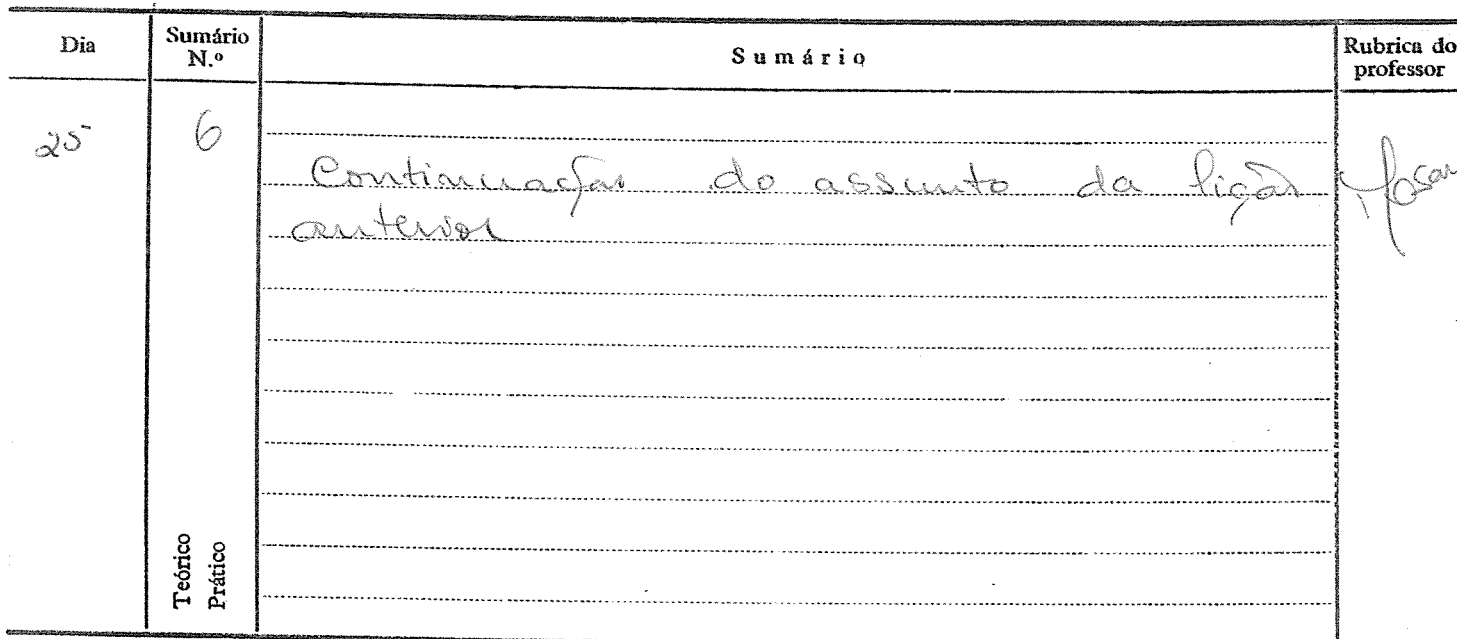 Dia
Sumário N.º
Sumário
Rubrica do professor
25
6
Continuação do assunto da lição
anterior
Teórico
Prático